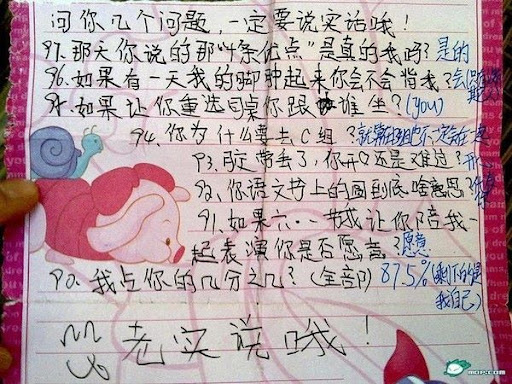 问你几个问题,一定要说实话哦!
97.那天你说的那"4条优点"是真的吗?是的
96.如果有一天我的脚肿起来你会不会背我?会
95.如果让你重选同桌你跟谁坐?(you)
94.你为什么要去C组?就算在B组也不一定
93.胶带丢了,你开心还是难过?开
92.你语文书上的圈到底啥意思?
91.如果六·一我让你陪我一
起表演你是否愿意?愿意
90.我占你的几分之几?(全部)87.5%(剩下的是
我自己)
老实说哦!
MOP.COM